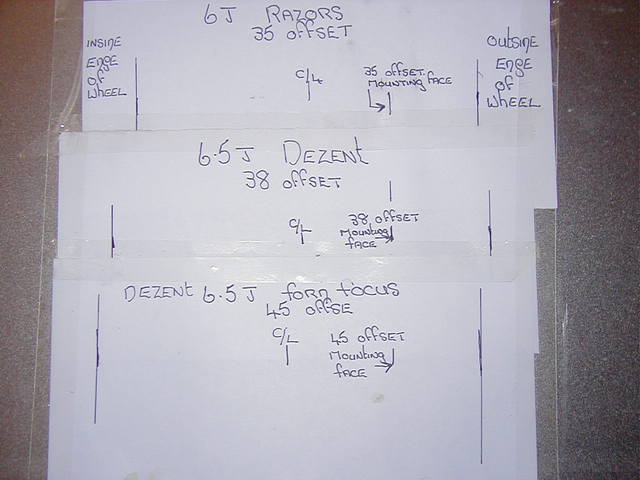 6J RAZORS
35 OFFSET
INSINE
ENGE
OF
WHEEL
OUTSINE
ENGE
OF
WHEEL
C/L
35 OFFSET.
MOUNTING FACE
6.5J DEZENT
38 OFFSET
C/L
38 OFFSET
MOUNTING
FACE
DEZENT 6.5J FORN FOCUS
45 OFFSE
C/L
45 OFFSET
MOUNTING
FACE